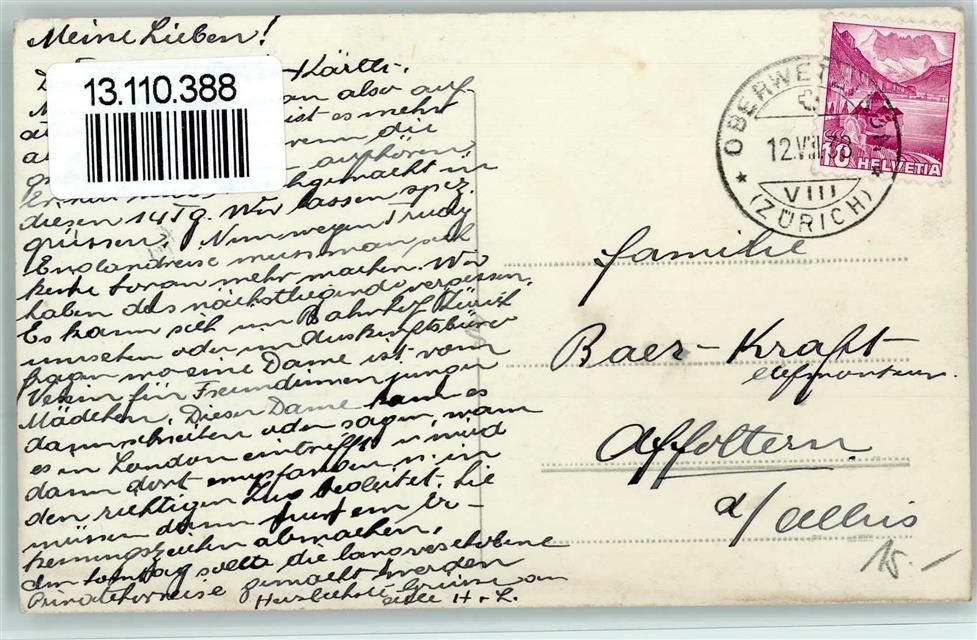 Meine Lieben!
Kärtli.
13.110.388
also auf-
ist es mehr
die
aufhören,
gemacht in
diesen 14 Tg. Wir lassen spez.
grüssen, Nun wegen Trudy
Englandreise muss man sich
keine Sorgen mehr machen. Wir
haben das nächstliegende vergessen.
Es kann sich im Bahnhof Zürich
umsehen oder im Auskunftsbüro
fragen wo eine Dame ist vom
Verein für Freundinnen junger
Mädchen. Dieser Dame kann es
dann schreiben oder sagen, wann
es in London eintrifft u. wird
dann dort empfangen u. in
den richtigen Zug begleitet. Sie
müssen dann nur ein Er-
kennungszeichen abmachen,
am Sonntag sollte die langverschobene
gemacht werden
Herzliche Grüsse an
alle H + L.
OBERWETZIKON
12.VIII.38
VIII
(ZÜRICH)
10 HELVETIA
Familie
Baer-Kraft
Elfmonteur.
Affoltern
a/Albis
15.-